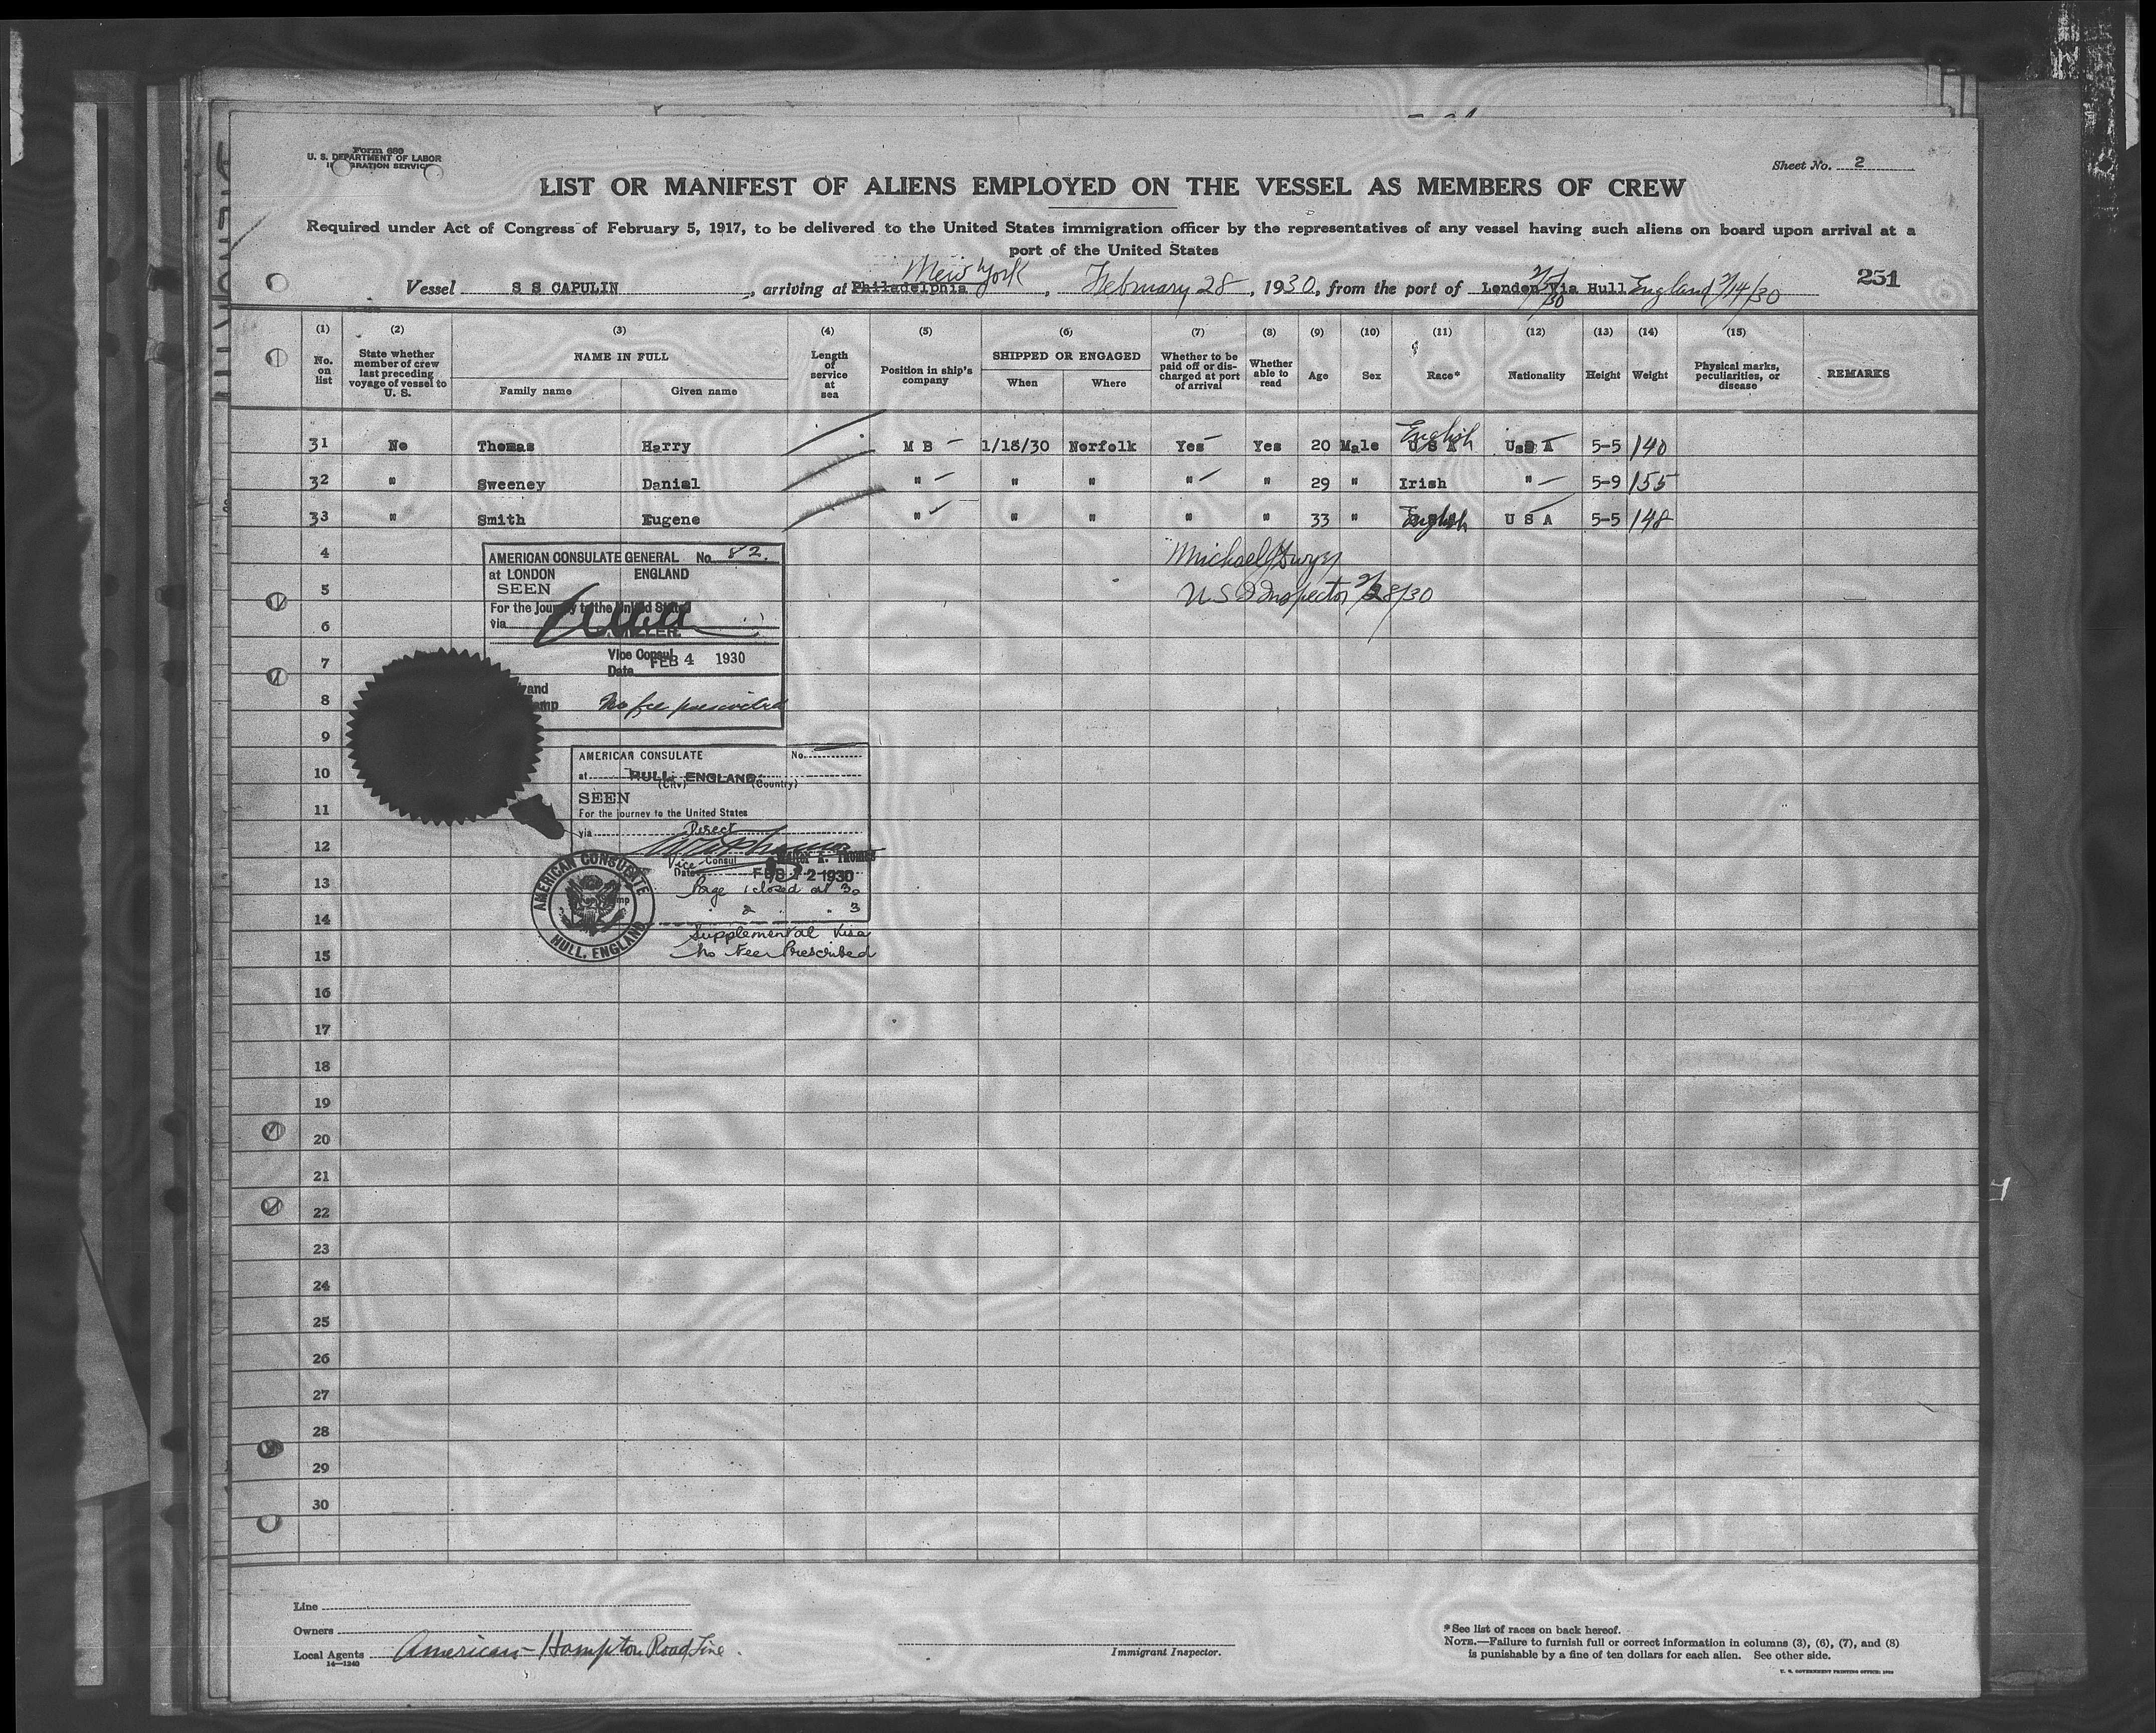 Form 680
U. S. DEPARTMENT OF LABOR
IMMIGRATION SERVICE
Sheet No. 2
LIST OR MANIFEST OF ALIENS EMPLOYED ON THE VESSEL AS MEMBERS OF CREW
Required under Act of Congress of February 5, 1917, to be delivered to the United States immigration officer by the representatives of any vessel having such aliens on board upon arrival at a
port of the United States
New York
Vessel S S CAPULIN, arriving at Philadelphia, February 28, 1930, from the port of London 2/5/30 Via Hull England 2/14/30
251
(1) (2) (3) (4) (5) (6) (7) (8) (9) (10) (11) (12) (13) (14) (15)
No. on list
State whether member of crew last preceding voyage of vessel to U. S.
NAME IN FULL
Family name
Given name
Length of service at sea
Position in ship's company
SHIPPED OR ENGAGED
When
Where
Whether to be paid off or discharged at port of arrival
Whether able to read
Age
Sex
Race*
Nationality
Height
Weight
Physical marks, peculiarities, or disease
REMARKS
31 No Thomas Harry M B 1/18/30 Norfolk Yes Yes 20 Male U S A English U S A 5-5 140
32 " Sweeney Daniel " " " " " 29 " Irish " 5-9 155
33 " Smith Eugene " " " " " 33 " English U S A 5-5 148
4
5
6
7
8
9
10
11
12
13
14
15
16
17
18
19
20
21
22
23
24
25
26
27
28
29
30
Michael Dwyer
U S Inspector 2/28/30
AMERICAN CONSULATE GENERAL No. 82.
at LONDON ENGLAND
SEEN
For the journey to the United States
via
MILLER.
Vice Consul
Date FEB 4 1930
and
No fee prescribed
AMERICAN CONSULATE No.
at HULL, ENGLAND.
(City) (Country)
SEEN
For the journey to the United States
via Direct
Vice Consul Walter A. Thomas
Date FEB 12 1930
Page 1 closed at 30
" 2 " " 3
Supplemental Visa
No Fee Prescribed
AMERICAN CONSULATE
HULL, ENGLAND
Line
Owners
Local Agents American-Hampton Road Line.
14—1240
Immigrant Inspector.
* See list of races on back hereof.
NOTE.—Failure to furnish full or correct information in columns (3), (6), (7), and (8)
is punishable by a fine of ten dollars for each alien. See other side.